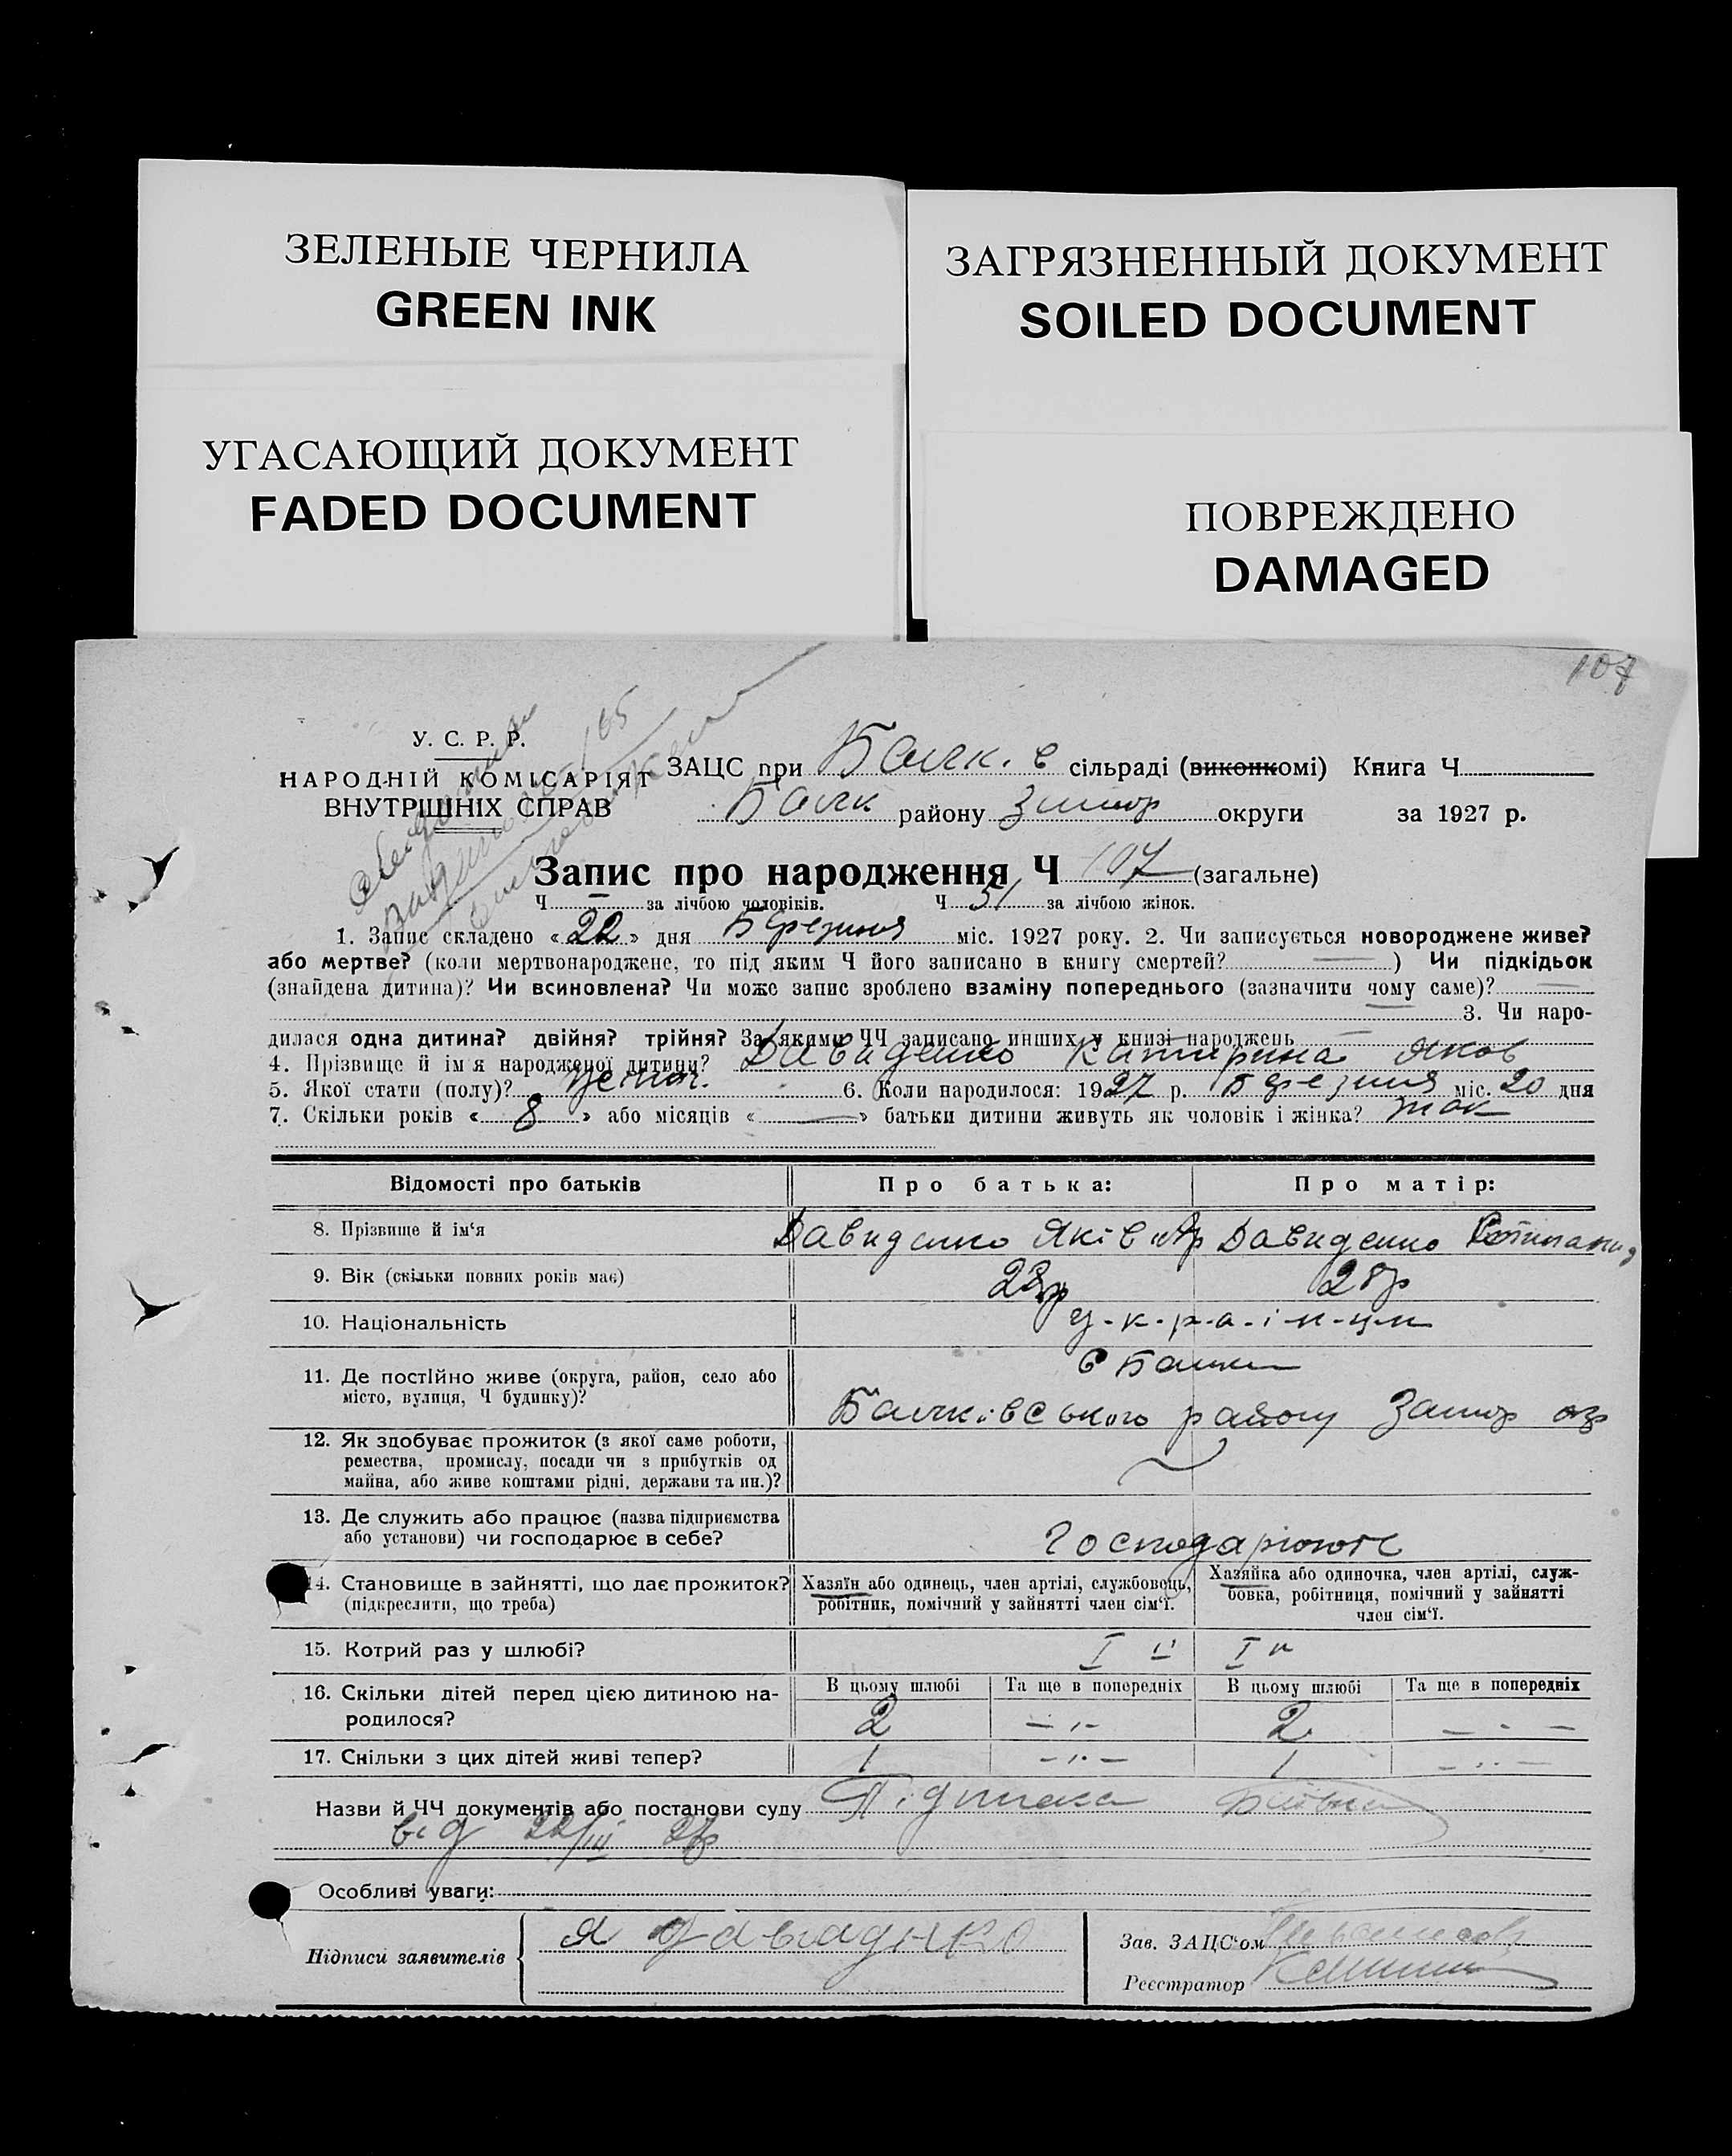 ЗЕЛЕНЫЕ ЧЕРНИЛА
GREEN INK
ЗАГРЯЗНЕННЫЙ ДОКУМЕНТ
SOILED DOCUMENT
УГАСАЮЩИЙ ДОКУМЕНТ
FADED DOCUMENT
ПОВРЕЖДЕНО
DAMAGED
107
У. С. Р. Р.
НАРОДНІЙ КОМІСАРІЯТ
ВНУТРІШНІХ СПРАВ
ЗАЦС при сільраді (виконкомі) Книга Ч
району округи за 1927 р.
Запис про народження Ч 107 (загальне)
Ч — за лічбою чоловіків. Ч 51 за лічбою жінок.
1. Запис складено «22» дня Березиня міс. 1927 року. 2. Чи записується новороджене живе?
або мертве? (коли мертвонароджене, то під яким Ч його записано в книгу смертей? —) Чи підкідьок
(знайдена дитина)? Чи всиновлена? Чи може запис зроблено взаміну попереднього (зазначити чому саме)? —
— 3. Чи наро-
дилася одна дитина? двійня? трійня? За якими ЧЧ записано инших у книзі народжень —
4. Прізвище й ім'я народженої дитини? Давиденко Катерина Яков
5. Якої стати (полу)? 6. Коли народилося: 1927 р. Березиня міс. 20 дня
7. Скільки років «8» або місяців «—» батьки дитини живуть як чоловік і жінка? так
Відомості про батьків Про батька: Про матір:
8. Прізвище й ім'я Давиденко Яків Давиденко
9. Вік (скільки повних років має) 28р
10. Національність у-к-р-а-ї-н-ци
11. Де постійно живе (округа, район, село або
місто, вулиця, Ч будинку)? Балківського району Запор окр
12. Як здобуває прожиток (з якої саме роботи,
ремества, промислу, посади чи з прибутків од
майна, або живе коштами рідні, держави та ин.)?
13. Де служить або працює (назва підприємства
або установи) чи господарює в себе? Господарюють
14. Становище в зайнятті, що дає прожиток? Хазяїн або одинець, член артілі, службовець, Хазяйка або одиночка, член артілі, служ-
(підкреслити, що треба) робітник, помічний у зайнятті член сім'ї. бовка, робітниця, помічний у зайнятті
член сім'ї.
15. Котрий раз у шлюбі? I й I й
16. Скільки дітей перед цією дитиною на- В цьому шлюбі Та ще в попередніх В цьому шлюбі Та ще в попередніх
родилося? 2 — 2 —
17. Скільки з цих дітей живі тепер? 1 — 1 —
Назви й ЧЧ документів або постанови суду
від 22/III 27р
Особливі уваги:
Підписи заявителів Я
Зав. ЗАЦС'ом
Реєстратор